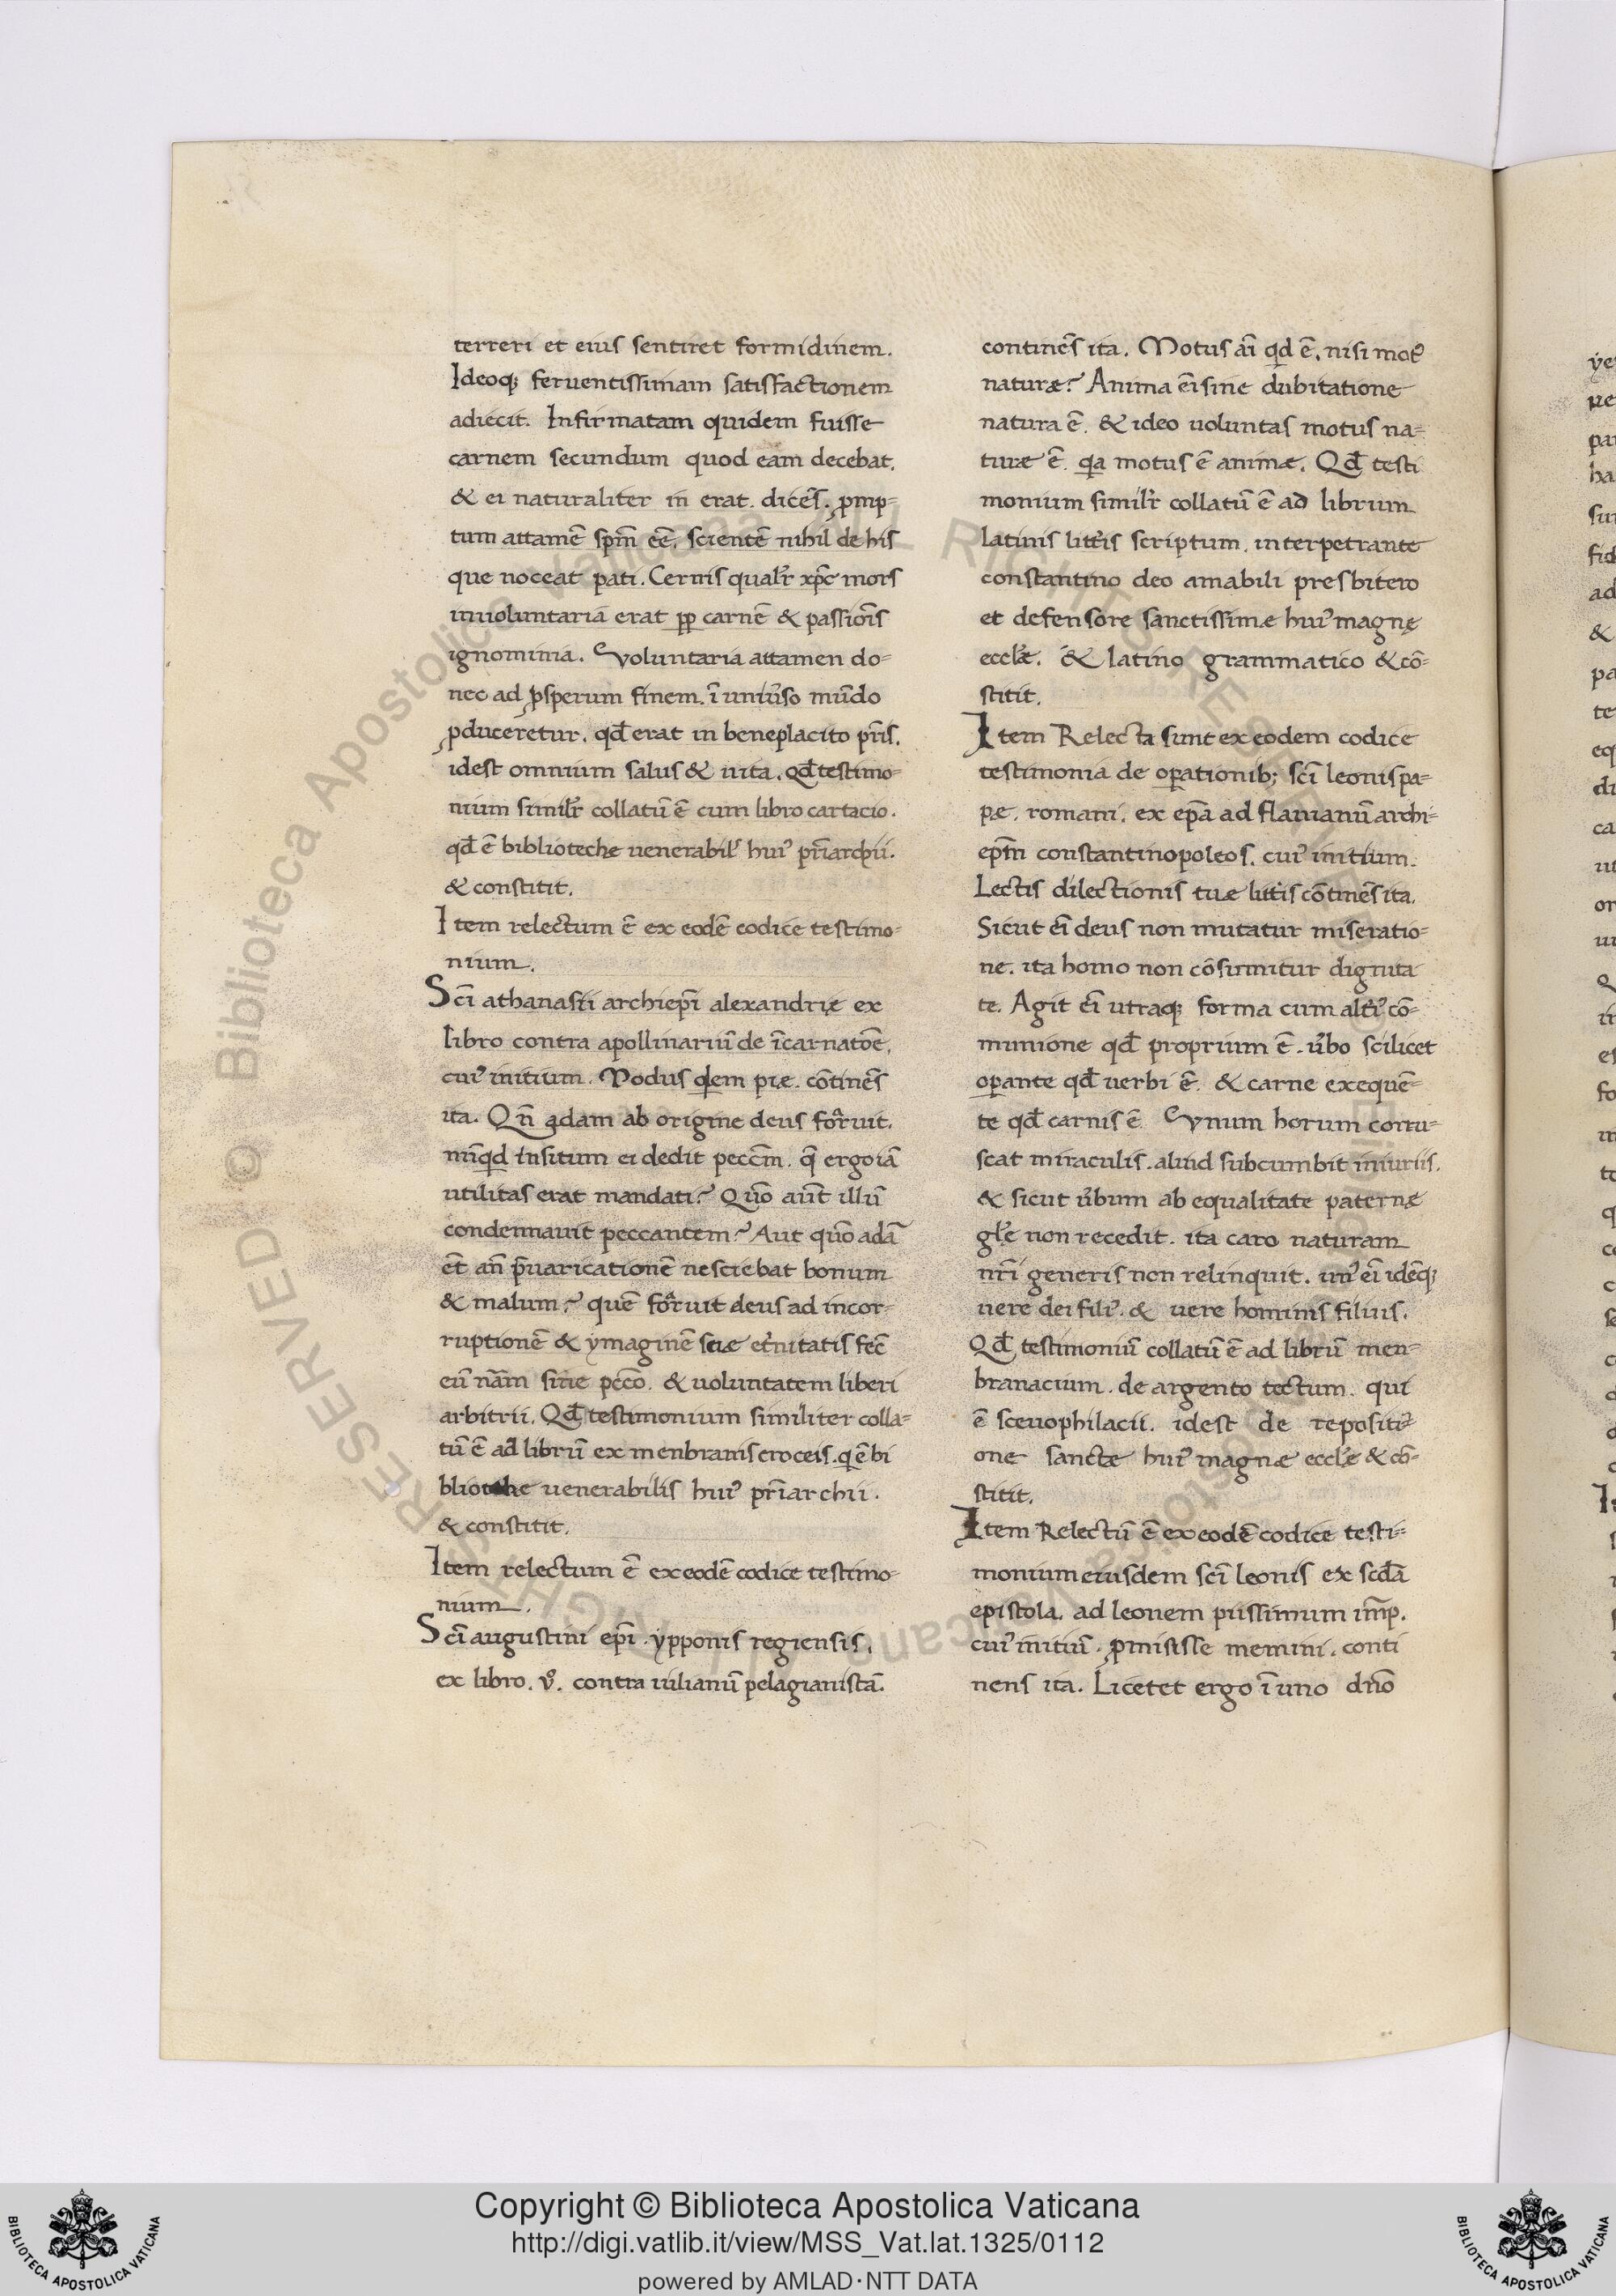 terreri et eius sentiret formidinem.
Ideoq; feruentissimam satisfactionem
adiecit. Infirmatam quidem fuisse
carnem secundum quod eam decebat.
& ei naturaliter in erat. dicēs. ꝓmp-
tum attamē sp̄m eē. scientē nihil de his
que noceat pati. Cernis qualr̄ xp̄c mors
inuoluntaria erat pp̱ carnē & passiōīs
ignominia. Voluntaria attamen do-
nec ad ꝓsperum finem. ī uniūso mūdo
ꝓduceretur. qđ erat in beneplacito pr̄is.
idest omnium salus & uita. Qđ testimo-
nium similr̄ collatū ē cum libro cartacio.
qđ ē bibliotheche uenerabil' hui᾽ pr̄iarchii.
& constitit.
Item relectum ē ex eodē codice testimo-
nium.
Sc̄i athanasii archiep̄i alexandrię ex
libro contra apollinariū de īcarnatōe.
cui᾽ initium. Modus qđem piæ. cōtinēs
ita. Qn̄ adam ab origine deus formauit.
nūqd insitum ei dedit pecc̄m. q̄ ergo iā
utilitas erat mandati? Quō aūt illū
condemnauit peccantem? Aut quō adā
ēt an̄ p̄uaricationē nesciebat bonum
& malum? quē formauit deus ad incor-
ruptionē & ymaginē suæ et̄nitatis fec̄
eū nām̄ sine pc̄co. & uoluntatem liberi
arbitrii. Qđ testimonium similiter colla-
tū ē ad librū ex menbranis croceis. q ē bi
bliotehe uenerabilis hui᾽ pr̄iarchii.
& constitit.
Item relectum ē ex eodē codice testimo-
nium.
Sc̄i augustini ep̄i. ypponis regiensis.
ex libro. v°. contra iulianū pelagianistā.
continēs ita. Motus aī qđ ē. nisi mot᾽
naturæ? Anima eī sine dubitatione
natura ē. & ideo uoluntas motus na-
turæ ē. qa motus ē animæ. Qđ testi
monium similr̄ collatū ē ad librum
latinis litt̄is scriptum. interpetrante
constantino deo amabili presbitero
et defensore sanctissimæ hui᾽ magnę
eccl̄æ. & latino grammatico & cō-
stitit.
Item Relecta sunt ex eodem codice
testimonia de oꝑationib; sc̄i leonis pa-
pæ. romani. ex ep̄a ad flauianū archi-
ep̄m constantinopoleos. cui᾽ initium.
Lectis dilectionis tuæ litt̄is cōtinēs ita.
Sicut eī deus non mutatur miseratio-
ne. ita homo non cōsumitur dignita
te. Agit eī utraq; forma cum alt̄i᾽ cō-
munione qđ proprium ē. ūbo scilicet
oꝑante qđ uerbi ē. & carne exequē-
te qđ carnis ē. Vnum horum corru-
scat miraculis. aliud subcumbit iniuriis.
& sicut ūbum ab equalitate paternæ
gl̄e non recedit. ita caro naturam
nr̄i generis non relinquit. un᾽ eī idēq;
uere dei fili᾽. & uere hominis filius.
Qđ testimoniū collatū ē ad librū men-
branacium. de argento tectum. qui
ē sceuophilacii. idest de repositi-
one sanctæ hui᾽ magnæ eccl̄æ & cō-
stitit.
Item Relectū ē ex eodē codice testi-
monium eiusdem sc̄i leonis ex sc̄đa
epistola. ad leonem piissimum im̄p.
cui᾽ initiū. ꝓmisisse memini. conti
nens ita. Licetet ergo ī uno dn̄o
Copyright © Biblioteca Apostolica Vaticana
http://digi.vatlib.it/view/MSS_Vat.lat.1325/0112
powered by AMLAD·NTT DATA